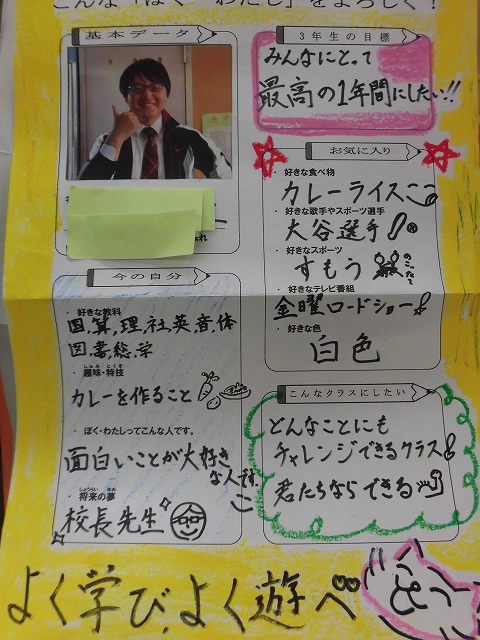 こんな「ぼく・わたし」をよろしく！
基本データ
3年生の目標
みんなにとって
最高の1年間にしたい!!
お気に入り
・好きな食べ物
カレーライス
・好きな歌手やスポーツ選手
大谷選手
・好きなスポーツ
すもう
のこった
・好きなテレビ番組
金曜ロードショー
・好きな色
白色
今の自分
・好きな教科
国,算,理,社,英,音,体
図,書,総,学
・趣味・特技
しゅみ とくぎ
カレーを作ること
・ぼく・わたしってこんな人です。
面白いことが大好き
な人です。
・将来の夢
しょうらい ゆめ
校長先生
こんなクラスにしたい
どんなことにも
チャレンジできるクラス
君たちならできる
よく学び、よく遊べ